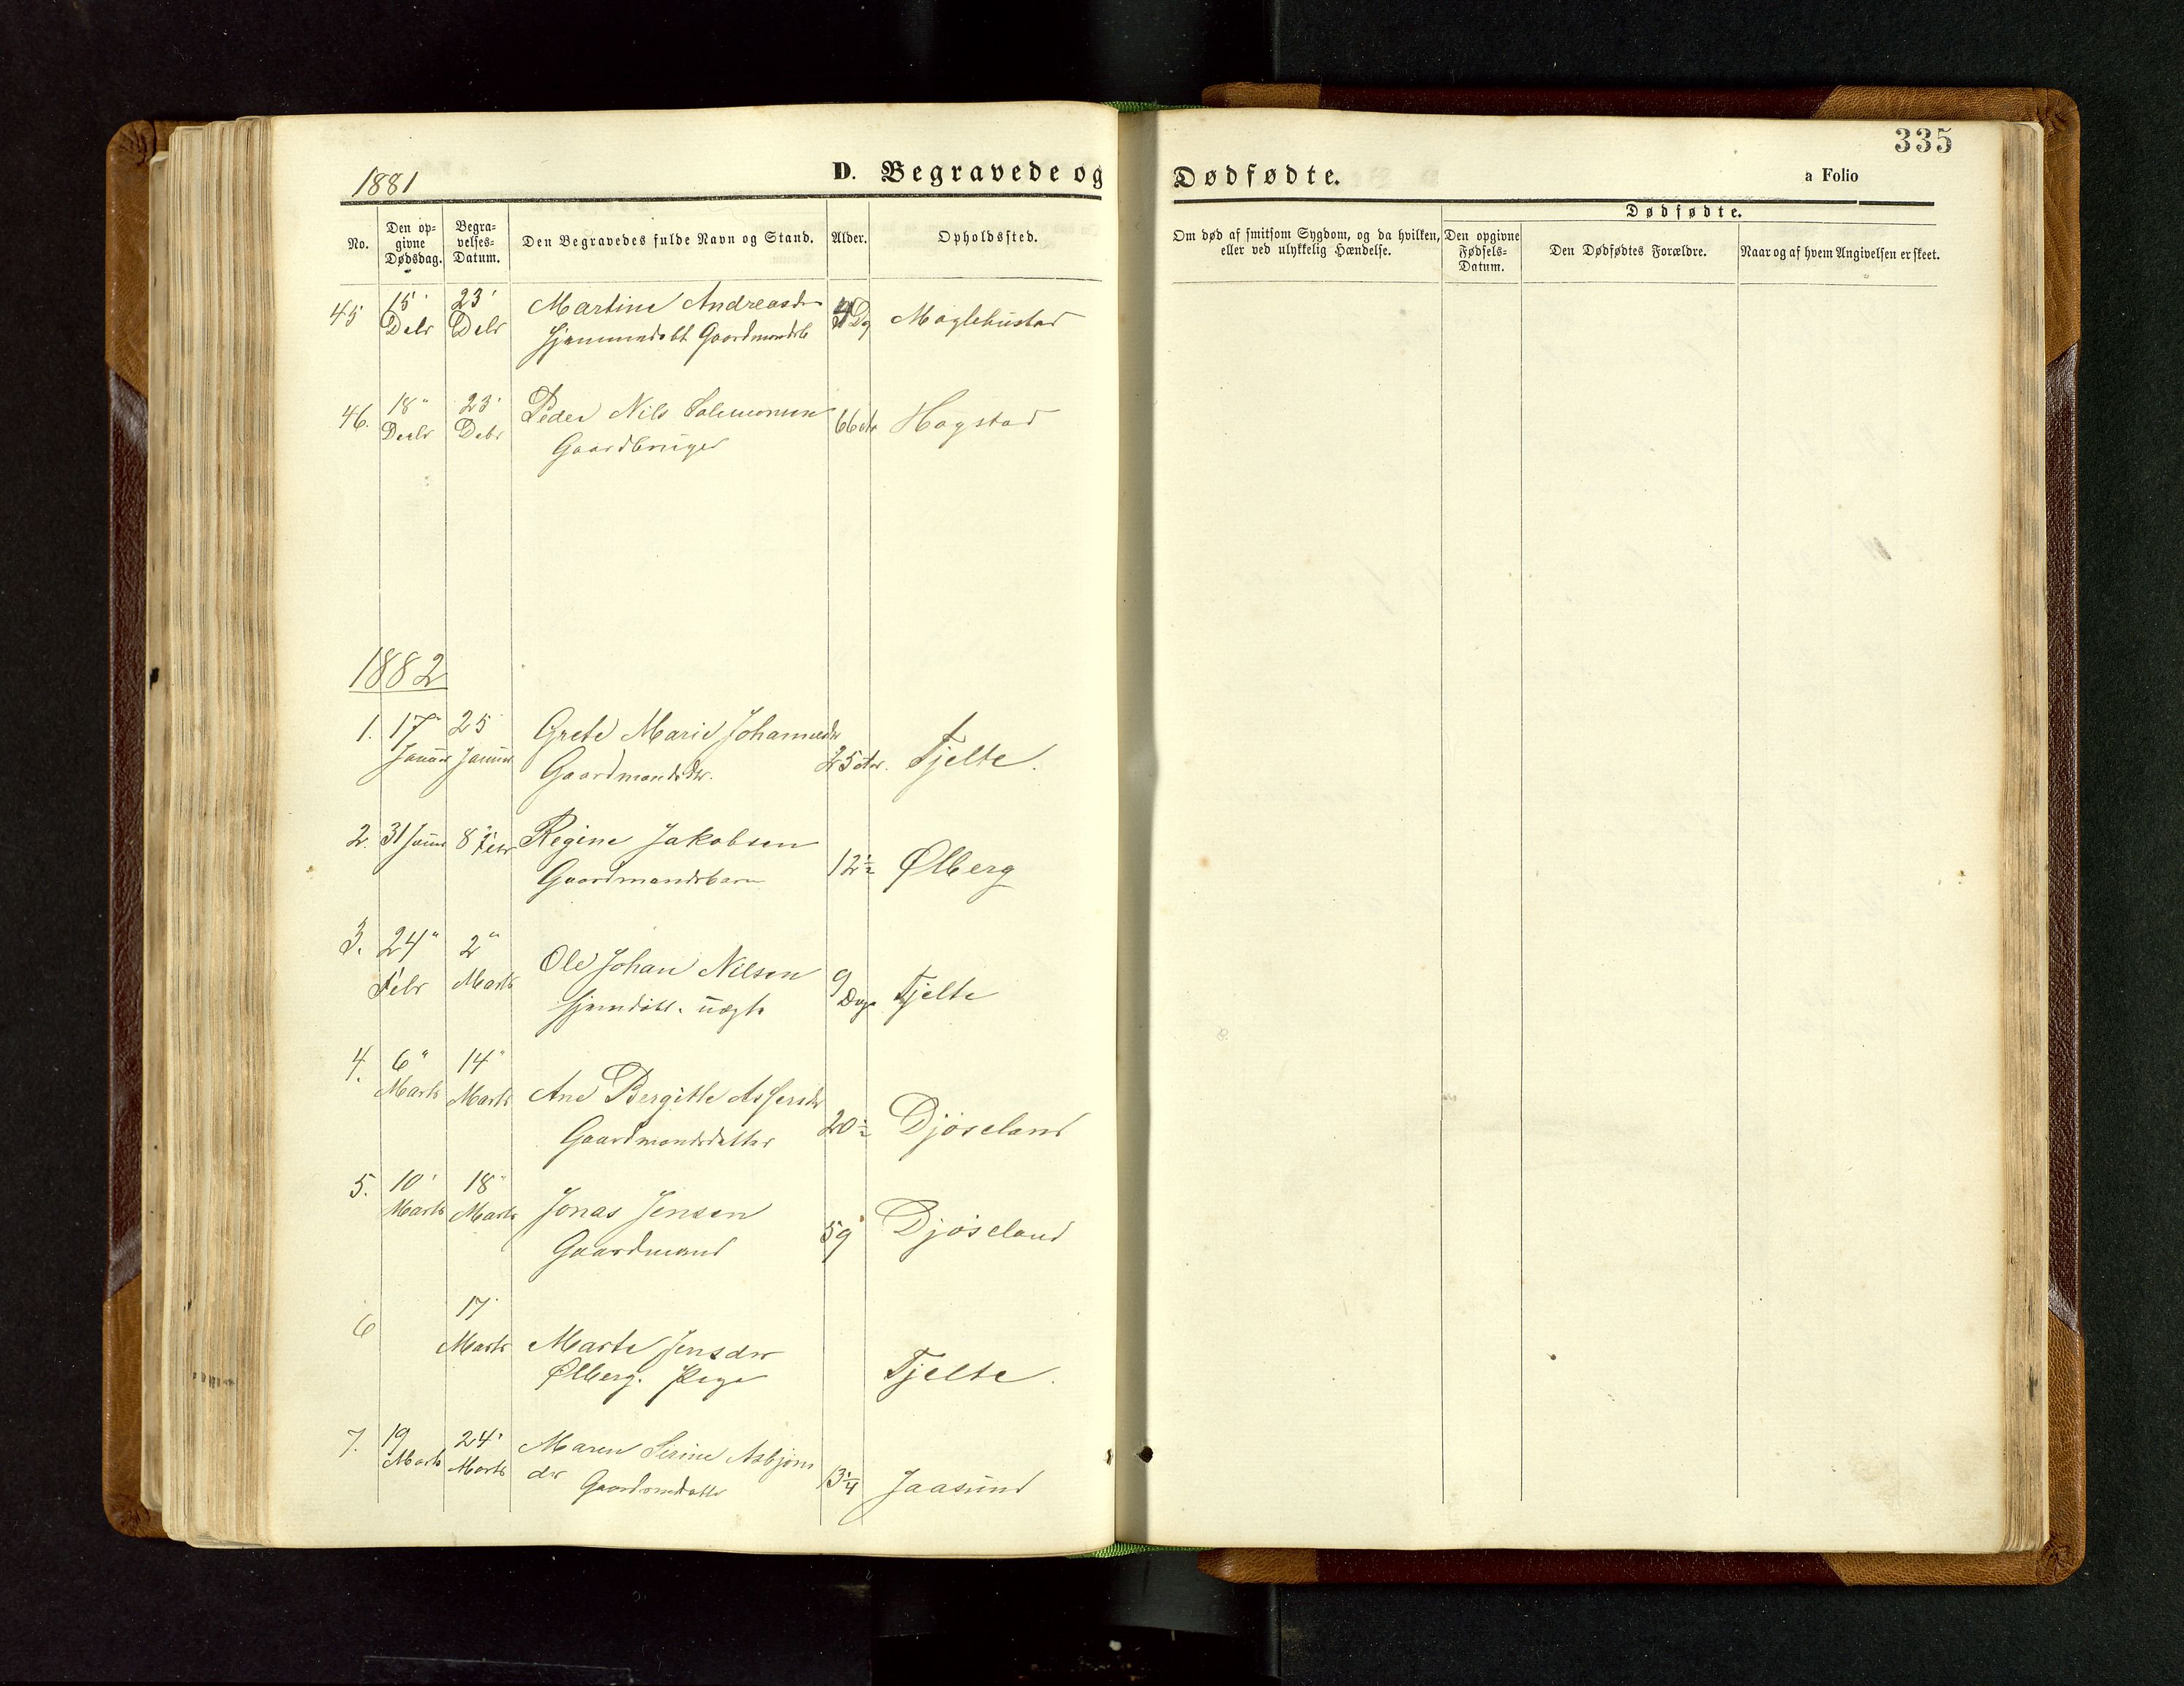 335
1881 D. Begravede og Dødfødte. a Folio
Dødfødte.
No. Den opgivne Dødsdag. Begravelses-Datum. Den Begravedes fulde Navn og Stand. Alder. Opholdssted. Om død af smitsom Sygdom, og da hvilken, eller ved ulykkelig Hændelse. Den opgivne Fødsels-Datum. Den Dødfødtes Forældre. Naar og af hvem Angivelsen er skeet.
45 15' 23' Martine Andreasdr
Debr Debr Hjemmedøbt Dg
46. 18" 23' Peder Nils
Decbr Debr Gaardbruger 66 Hogstad
1882
1. 17" 25 Grete Marie Johannesdr
Januar Januar Gaardmandsdr. 25 Tjelte.
2. 31 Januar 8 Febr Regine Jakobsen
Gaardmandsbarn 12½ Ølberg
3. 24" 2" Ole Johan Nilsen 9
Febr Marts Hjemdøbt. uægte Dage Tjelte
4. 6" 14"
Marts Marts Ane Bergitte
Gaardmandsdatter 20½ Djøseland
5. 10' 18"
Marts Marts Jonas Jensen
Gaardmand 59 Djøseland
6 17
Marts Marte Jensdr
Ølberg. Pige Tjelte.
7. 19 24' Maren Serine Asbjørns
Marts Marts dr 13¼ Jaasund